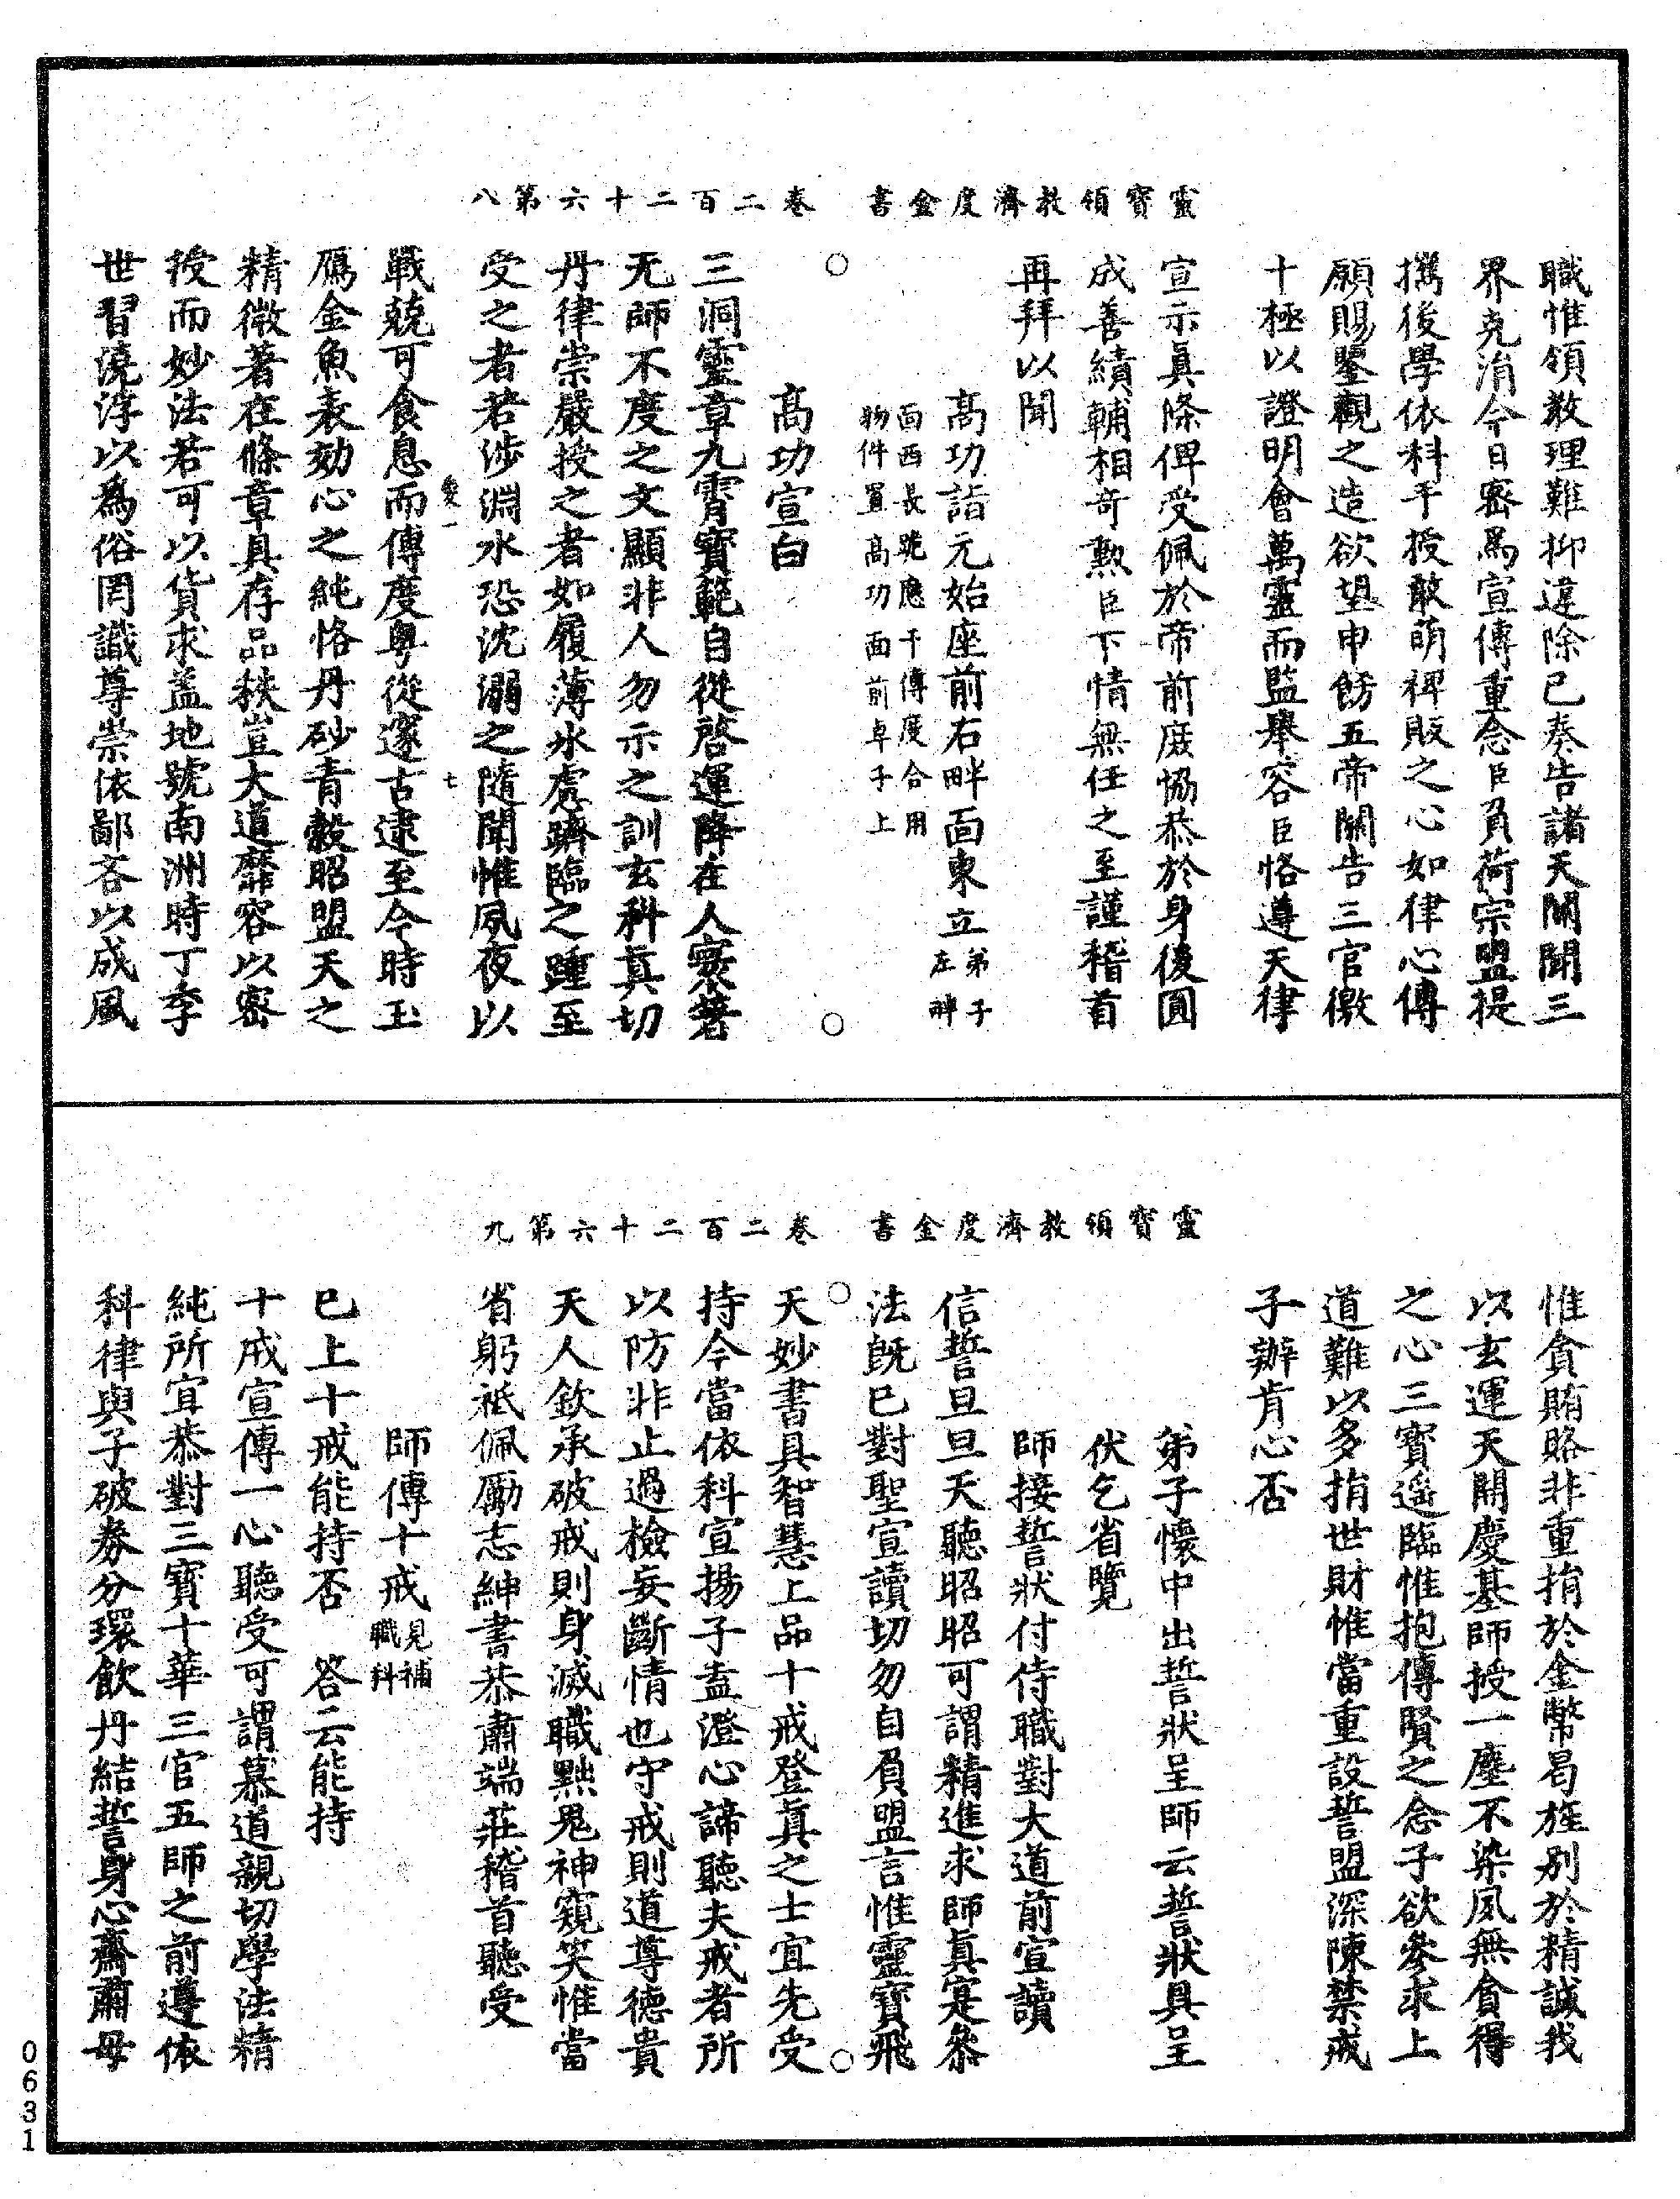 靈寶領教濟度金書　卷二百二十六第八
職惟領教理難抑違除已奏告諸天關聞三
界克涓今日密爲宣傳重念臣負荷宗盟提
攜後學依科干授敢萌裨販之心如律心傳
願賜鑒觀之造欲望申飭五帝關告三官徹
十極以證明會萬靈而監舉容臣恪遵天律
宣示眞條俾受佩於帝前庶協恭於身後圓
成善績輔相奇勲臣下情無任之至謹稽首
再拜以聞
高功詣元始座前右畔面東立弟子左畔
面西長號應干傳度合用
物件置高功面前卓子上
高功宣白
三洞靈章九霄寳範自從啓運降在人寰著
无師不度之文顯非人勿示之訓玄科真切
丹律崇嚴授之者如履薄氷處躋臨之踵至
受之者若涉淵水恐沈溺之隨聞惟夙夜以
戰兢可食息而傳度粤從邃古逮至今時玉
鴈金魚表効心之純恪丹砂青縠昭盟天之
精微著在條章具存品秩豈大道靡容以密
授而妙法若可以貨求盖地號南洲時丁季
世習澆淳以爲俗罔識尊崇依鄙吝以成風
靈寶領教濟度金書　卷二百二十六第九
惟貪賄賂非重捐於金幣曷旌別於精誠我
以玄運天開慶基師授一塵不染夙無貪得
之心三寳遥臨惟抱傳賢之念子欲參求上
道難以多捐世財惟當重設誓盟深陳禁戒
子辦肯心否
弟子懷中出誓狀呈師云誓狀具呈
伏乞省覽
師接誓狀付侍職對大道前宣讀
信誓旦旦天聽昭昭可謂精進求師眞寔叅
法旣已對聖宣讀切勿自負盟言惟靈寳飛
天妙書具智慧上品十戒登真之士宜先受
持今當依科宣揚子盍澄心諦聽夫戒者所
以防非止過檢妄斷情也守戒則道尊德貴
天人欽承破戒則身滅職黜鬼神窺笑惟當
省躬祗佩勵志紳書恭肅端莊稽首聽受
師傳十戒見補職科
已上十戒能持否　答云能持
十戒宣傳一心聽受可謂慕道親切學法精
純所宜恭對三寳十華三官五師之前遵依
科律與子破券分環飲丹結誓身心齋肅毋
0631